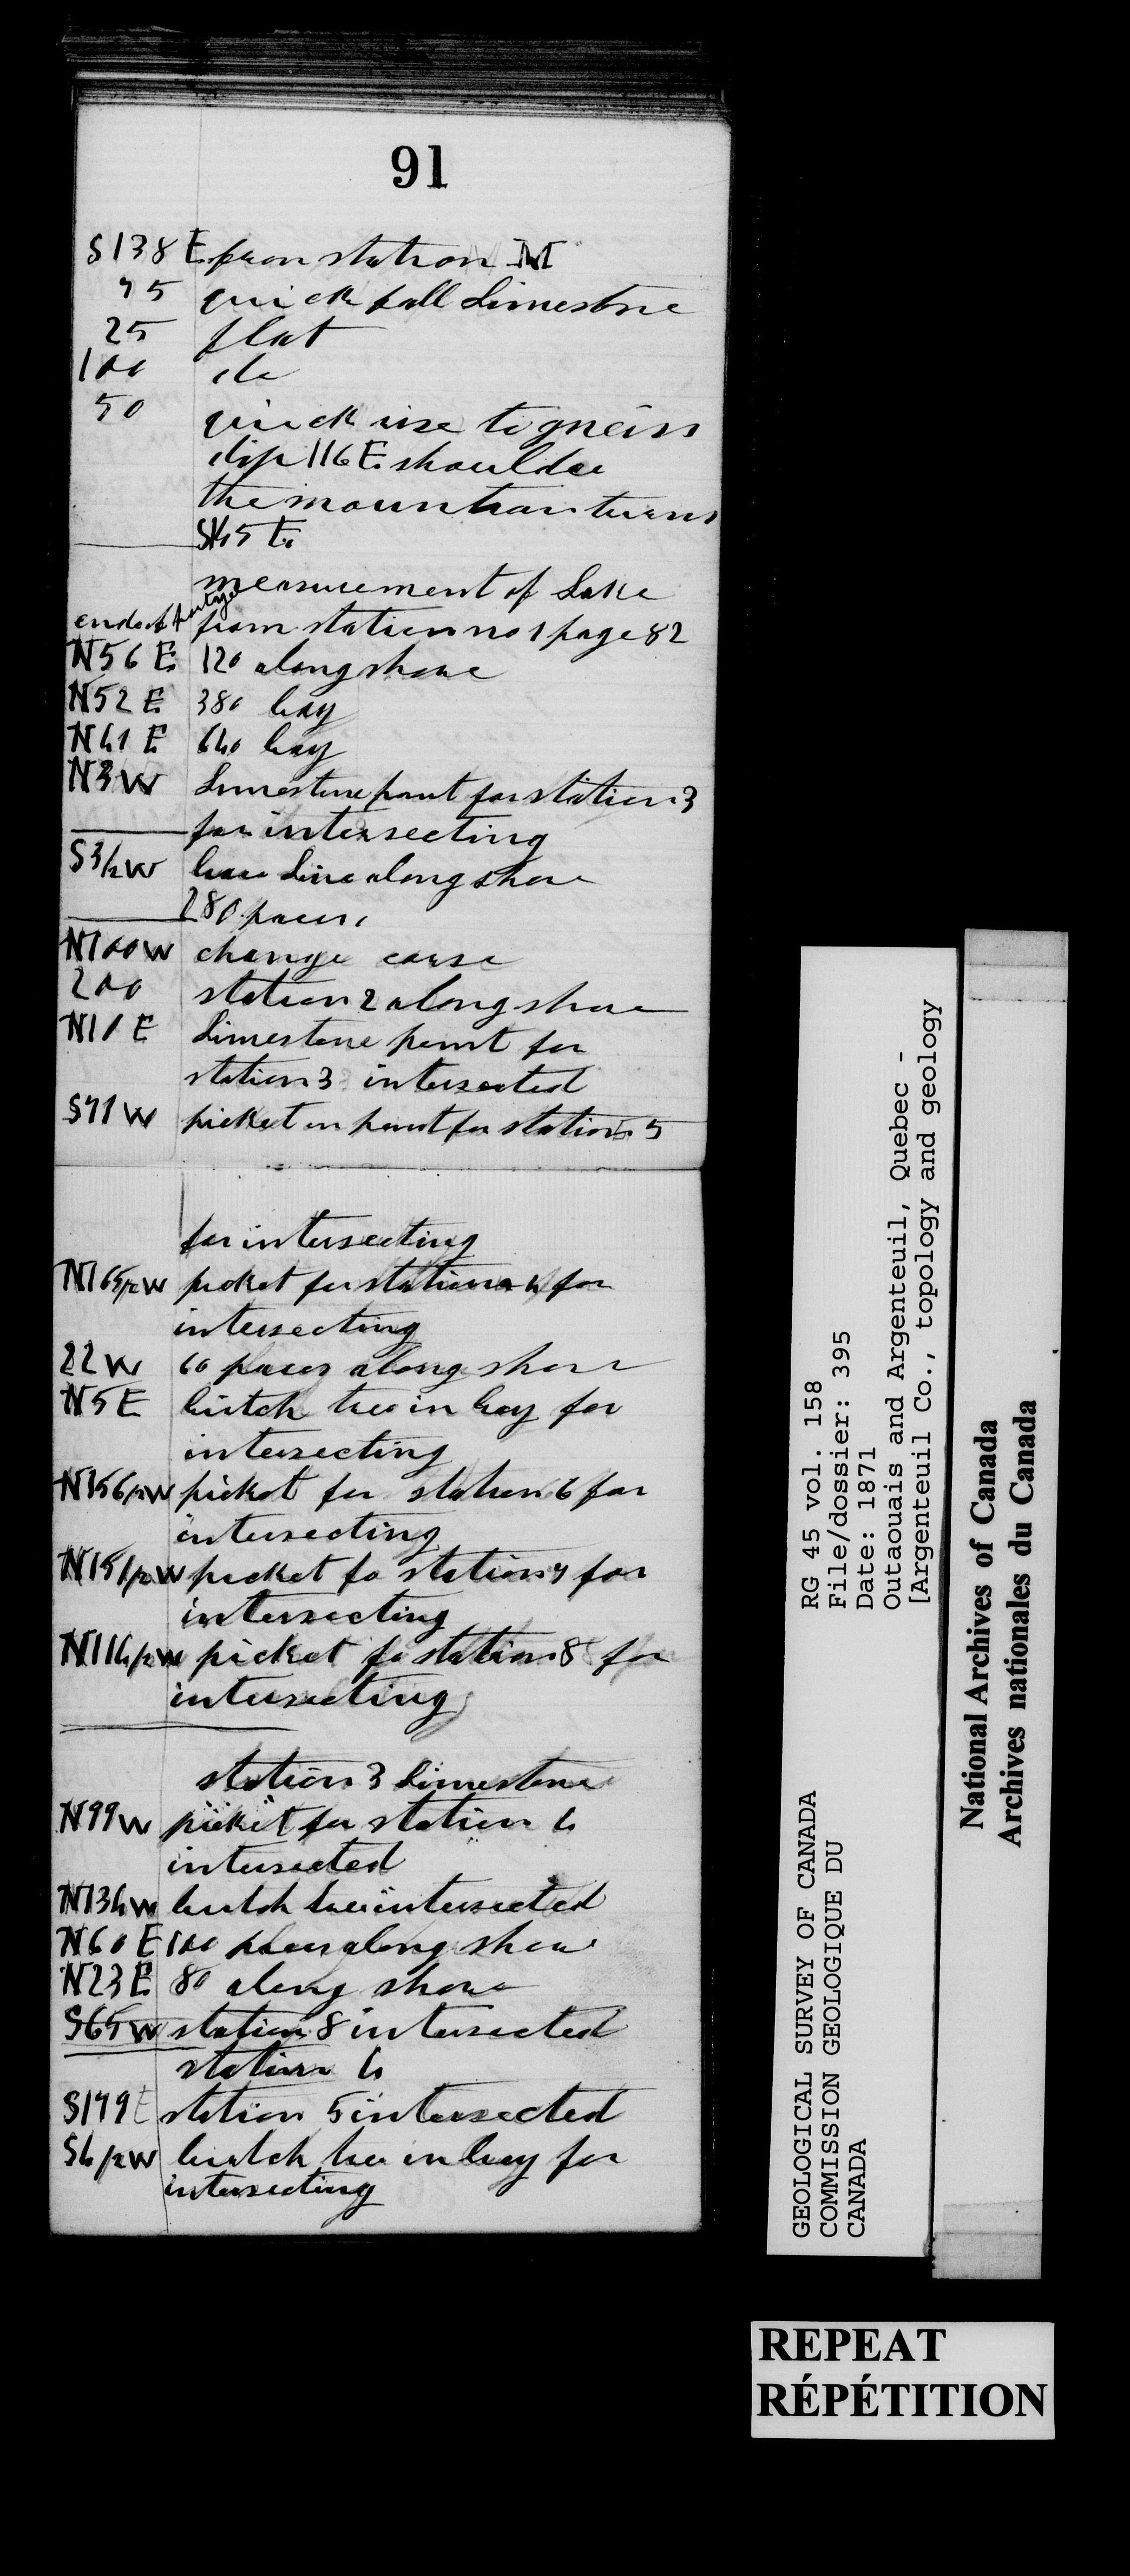 91
S138 E from station M
75 quick fall Limestone
25 flat
100 do
50 quick rise to gneiss
dip 116 E. shoulder
the mountain turns
S45 E.
measurement of Lake
end of Portage from station no 1 page 82
N56 E. 120 along shore
N52 E 380 bay
N41 E 640 bay
N3W Limestone point for station 3
for intersecting
S3/2W base Line along shore
280 paces
N100W change course
200 station 2 along shore
N11 E Limestone point for
station 3 intersected
S71W picket on point for station 5
for intersecting
N165/2W picket for station 4 for
intersecting
22W 60 paces along shore
N5E birtch tree in bay for
intersecting
N156/2W picket for station 6 for
intersecting
N151/2W picket fo station 7 for
intersecting
N114/2W picket fo station 8 for
intersecting
station 3 Limestone
N99W picket for station 4
intersected
N134W birtch tree intersected
N60 E 100 paces along shore
N23E 80 along shore
S65W station 8 intersected
station 4
S179E station 5 intersected
S4/2W birtch tree in bay for
intersecting
GEOLOGICAL SURVEY OF CANADA
COMMISSION GEOLOGIQUE DU
CANADA
RG 45 vol. 158
File/dossier: 395
Date: 1871
Outaouais and Argenteuil, Quebec -
[Argenteuil Co., topology and geology
National Archives of Canada
Archives nationales du Canada
REPEAT
RÉPÉTITION